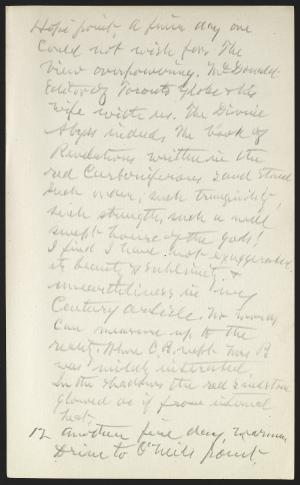 Hopi point, a finer day one
could not wish for. The
view overpowering. Mr McDonald
Editor of Toronto Globe & his
wife with us. The Divine
Abyss indeed. The book of
Revelations written in the
red Carboniferous sand stone
Such order, such tranquility,
such strength, such a well
swept house of the gods!
I find I have not exaggerated
its beauty & sublimity &
unearthliness in my
Century article. No words
can measure up to the
reality. Where C.B. Mrs B
was mildly interested.
In the shadows the red sandstone
glowed as if from internal
heat.
12 Another fine day, warmer
Drive to O'Neils point.